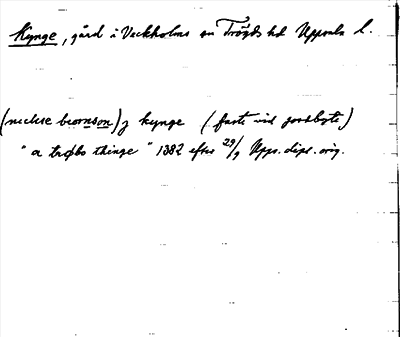 Kynge, gård i Veckholms sn Trögds hd Uppsala l.
(niclise beornson) j kynge (faste vid jordbyte)
"a trøbo thinge" 1382 efter 29/9 Upps. dipl. orig.